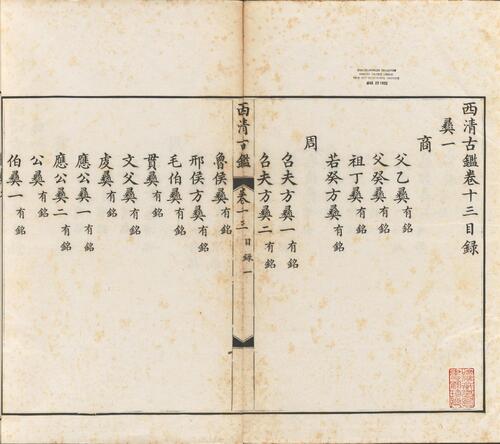 西清古鑑卷十三目録
彝一
商
父乙彝有銘
父癸彝有銘
祖丁彝有銘
若癸方彝有銘
周
召夫方彝一有銘
召夫方彝二有銘
西清古鑑 卷十三目録 一
魯侯彝有銘
邢侯方彝有銘
毛伯彝有銘
貫彝有銘
文父彝有銘
虔彝有銘
應公彝一有銘
應公彝二有銘
公彝有銘
伯彝一有銘